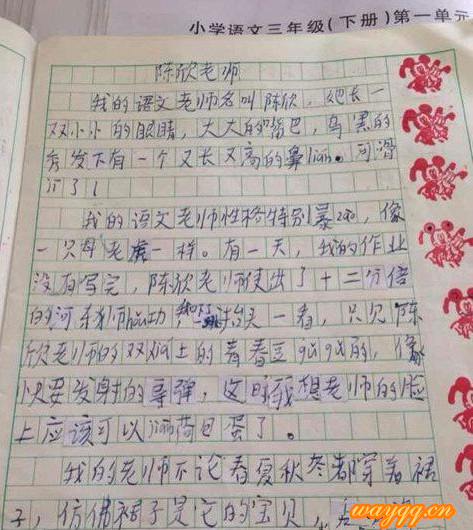 小学语文三年级(下册)第一单元
陈欣老师
我的语文老师名叫陈欣,她长一
双小小的眼睛,大大的嘴巴,乌黑的
秀发下有一个又长又高的鼻liang。可滑
ji了!
我的语文老师性格特别暴zao,像
一只母老虎一样。有一天,我的作业
没有写完,陈欣老师使出了十二分倍
的河东狮hou功,我抬头一看,只见陈
欣老师的双颊上的青春豆gugu的,像
以要发射的导弹,这时我想老师的脸
上应该可以煎荷包蛋了。
我的老师不论春夏秋冬都穿着裙
子,仿佛裙子是它的宝贝,
wayqq.cn